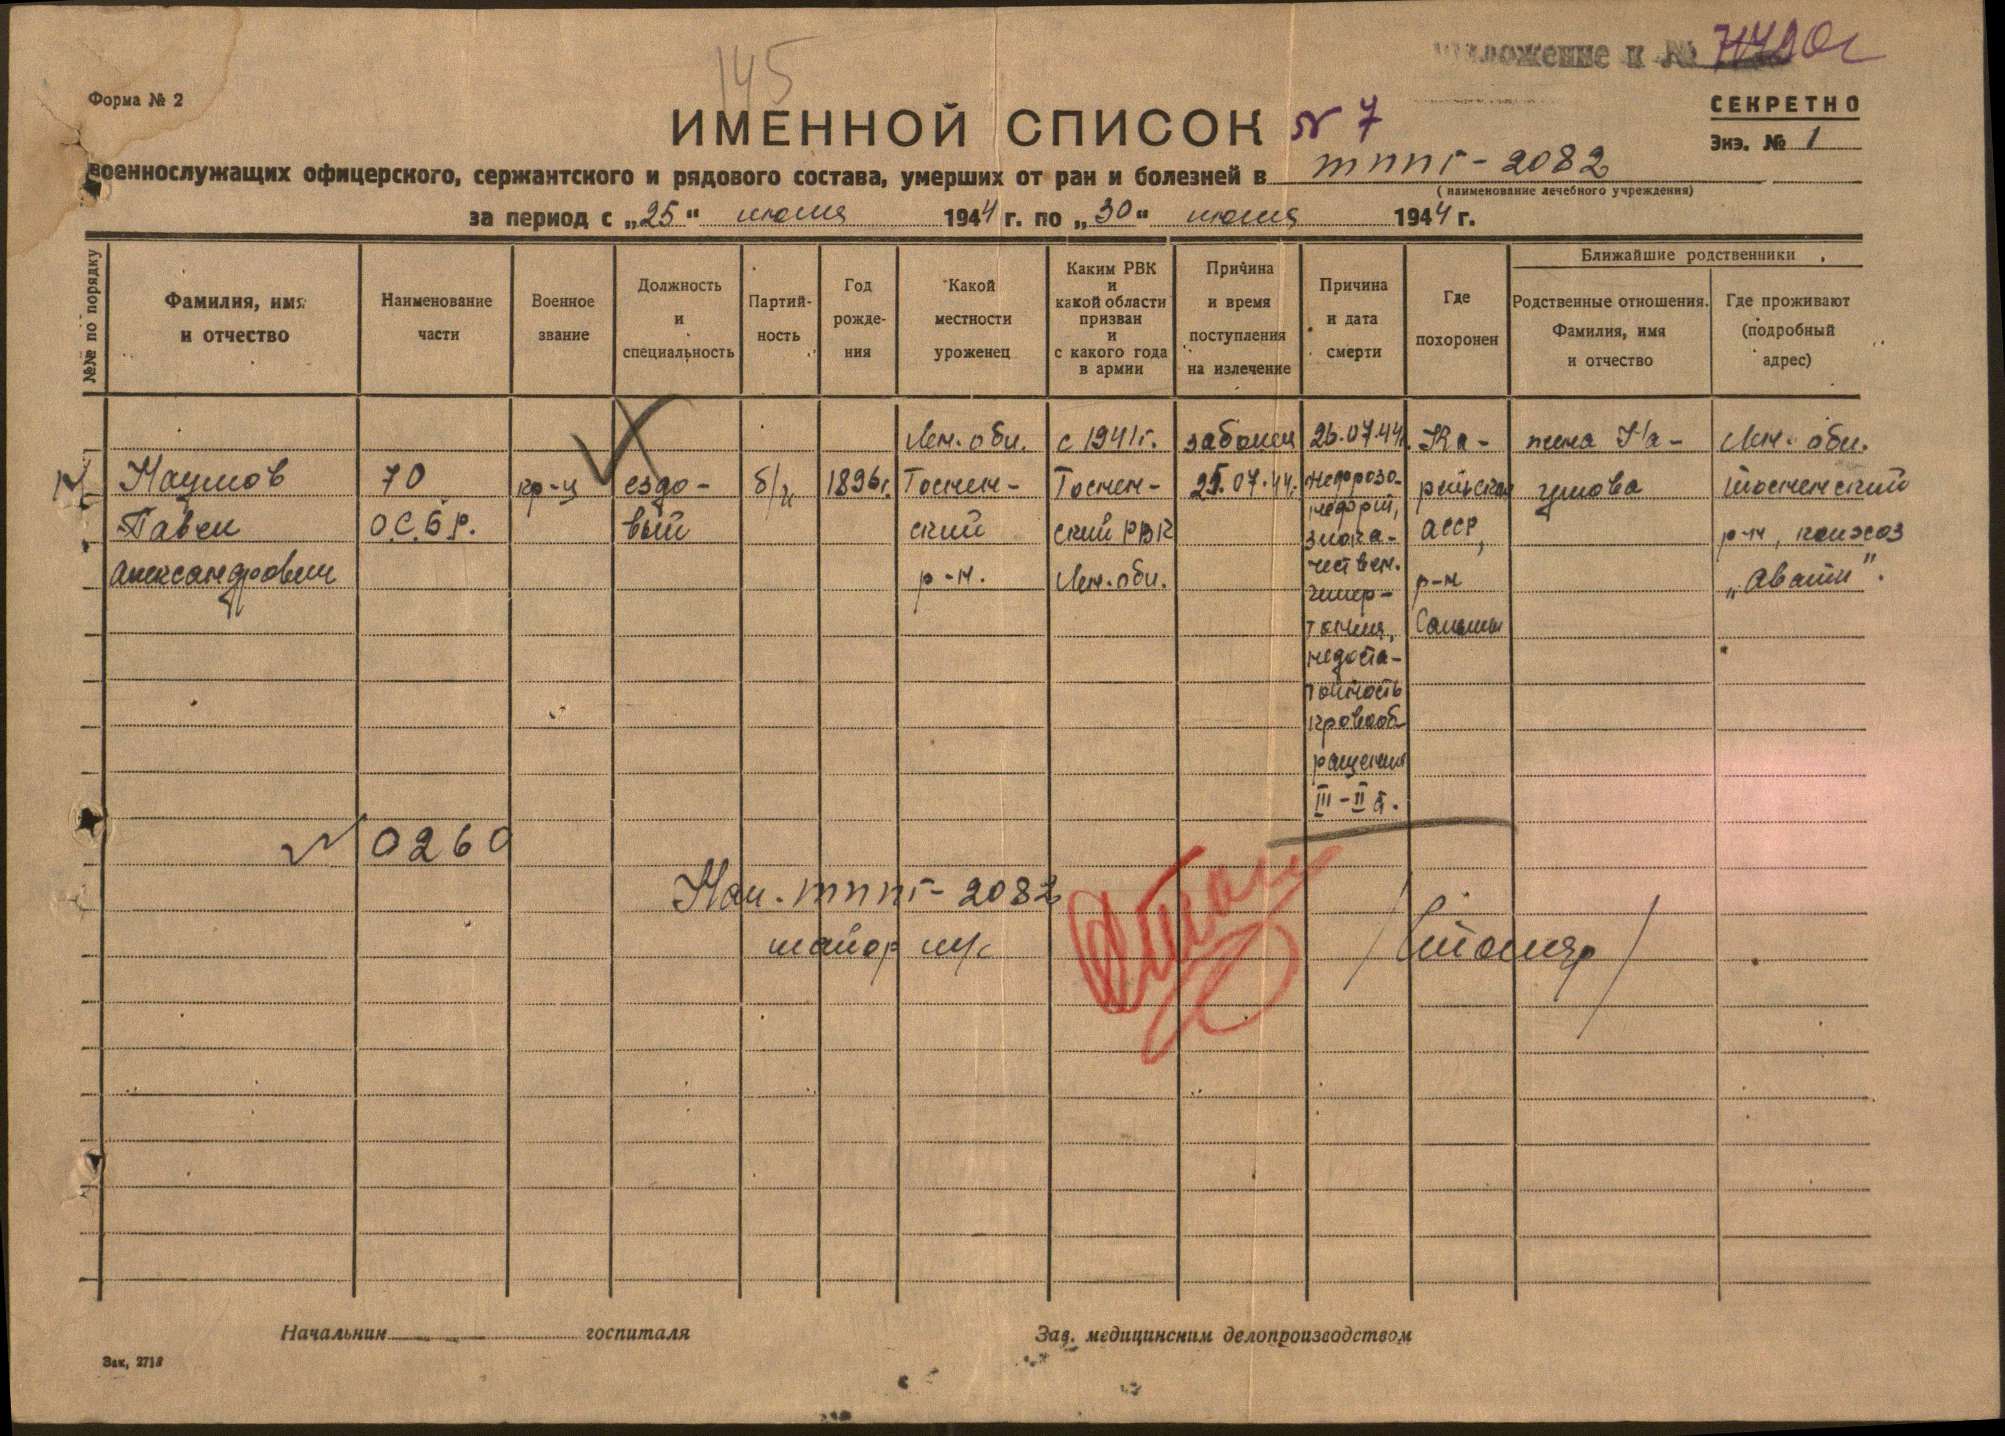 145
ложение к №
Форма № 2
СЕКРЕТНО
ИМЕННОЙ СПИСОК № 7
Экз. № 1
военнослужащих офицерского, сержантского и рядового состава, умерших от ран и болезней в ТППГ-2082
(наименование лечебного учреждения)
за период с „25" июля 1944 г. по „30" июля 1944 г.
№№ по порядку
Фамилия, имя
и отчество
Наименование
части
Военное
звание
Должность
и
специальность
Партий-
ность
Год
рожде-
ния
Какой
местности
уроженец
Каким РВК
и
какой области
призван
и
с какого года
в армии
Причина
и время
поступления
на излечение
Причина
и дата
смерти
Где
похоронен
Ближайшие родственники
Родственные отношения.
Фамилия, имя
и отчество
Где проживают
(подробный
адрес)
Наумов
Павел
Александрович
70
О.С.Б.р.
кр-ц
ездо-
вый
б/п
1896г.
Лен. обл.
Тоснен-
ский
р-н.
с 1941г.
Тоснен-
ский РВК
Лен. обл.
заболел
25.07.44.
26.07.44г.
нефрозо-
нефрит,
злока-
чествен.
гипер-
тония,
недоста-
точность
кровооб-
ращения
III-II ст.
Ка-
рельская
АССР,
р-н
Салмы
жена На-
умова
Лен. обл.
Тосненский
р-н, колхоз
„Авати".
0260
Нач. ТППГ-2082
майор м/с
/Столяр/
Начальник госпиталя
Зав. медицинским делопроизводством
Зак, 2718